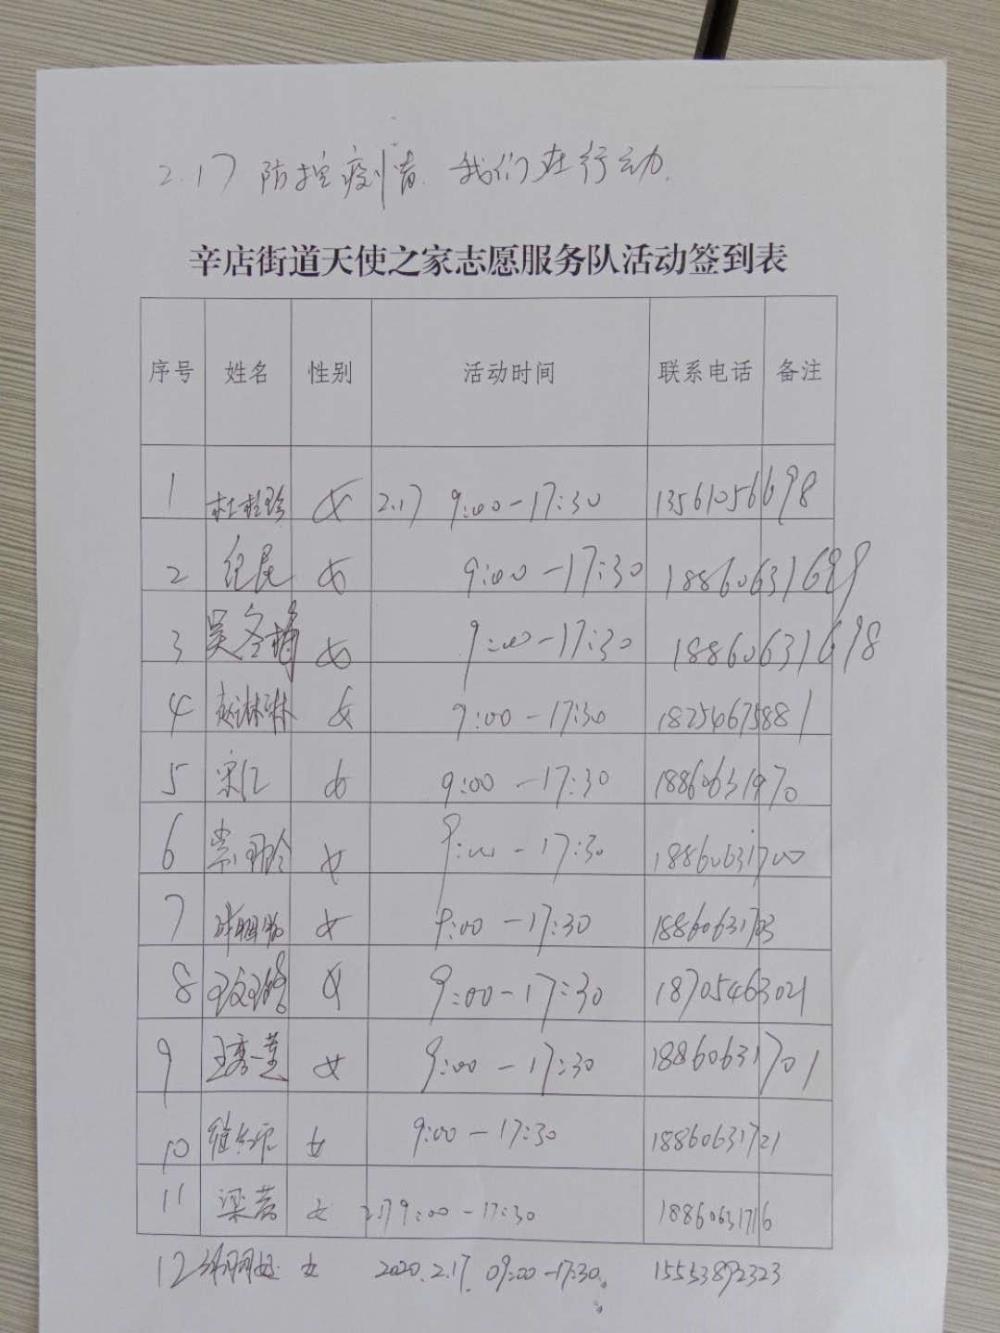 2.17 防控疫情 我们在行动.
辛店街道天使之家志愿服务队活动签到表
序号 姓名 性别 活动时间 联系电话 备注
1 杜桂珍 女 2.17 9:00-17:30 13561056698
2 纪昆 女 9:00-17:30 18860631699
3 吴冬梅 女 9:00-17:30 18860631698
4 赵琳琳 女 9:00-17:30 18254675881
5 宋江 女 9:00-17:30 18860631970
6 女 9:00-17:30 18860631700
7 女 9:00-17:30 18860631703
8 女 9:00-17:30 18705463021
9 王秀莲 女 9:00-17:30 18860631701
10 女 9:00-17:30 18860631721
11 梁芳 女 2.17 9:00-17:30 18860631716
12 女 2020.2.17. 09:00-17:30. 15553892323